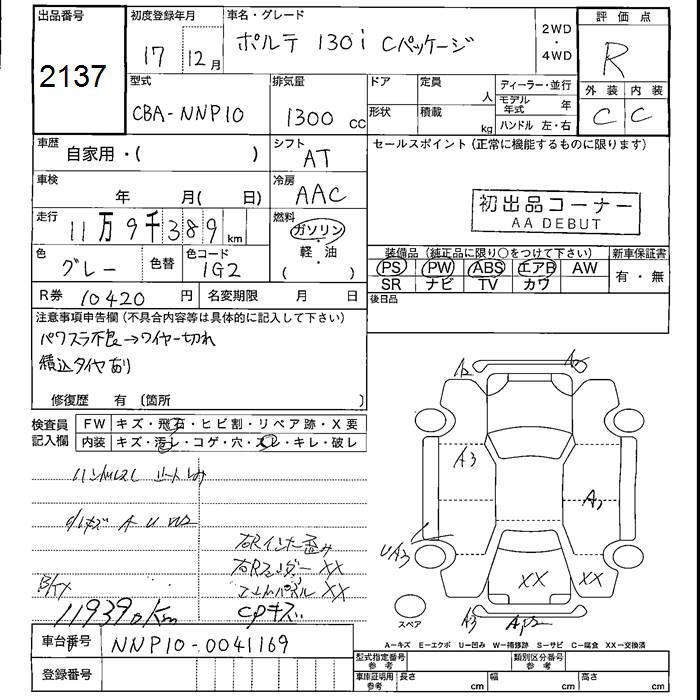 出品番号
2137
初度登録年月
17 12月
車名・グレード
ポルテ 130i Cパッケージ
2WD
・
4WD
評価点
R
外装 内装
C C
型式
CBA-NNP10
排気量
1300 cc
ドア
定員
人
形状
積載
kg
ディーラー・並行
モデル年式 年
ハンドル 左・右
車歴
自家用・( )
シフト
AT
セールスポイント(正常に機能するものに限ります)
車検
年 月( 日)
冷房
AAC
初出品コーナー
AA DEBUT
走行
11万9千389km
燃料
ガソリン
・
軽・油
( )
色
グレー
色替
色コード
1G2
装備品(純正品に限り○をつけて下さい)
新車保証書
PS PW ABS エアB AW
SR ナビ TV カワ
有・無
R券 10420円
名変期限 月 日
後日品
注意事項申告欄(不具合内容等は具体的に記入して下さい)
パワスラ不良→ワイヤー切れ
積込タイヤあり
修復歴 有 (箇所 )
検査員
記入欄
FW キズ・飛石・ヒビ割・リペア跡・X要
内装 キズ・汚レ・コゲ・穴・スレ・キレ・破レ
ハンドルスレ シートしみ
小キズ A U W2
右Rインナー歪み
右Rフェンダー XX
エンドパネル XX
cpキズ
119390km
A2
A3
A3
UA3
XX
XX
スペア
A-キズ E-エクボ U-凹み W-補修跡 S-サビ C-腐食 XX-交換済
車台番号
NNP10-0041169
登録番号
型式指定番号
参考
類別区分番号
参考
車庫証明用
参考
長さ cm
幅 cm
高さ cm